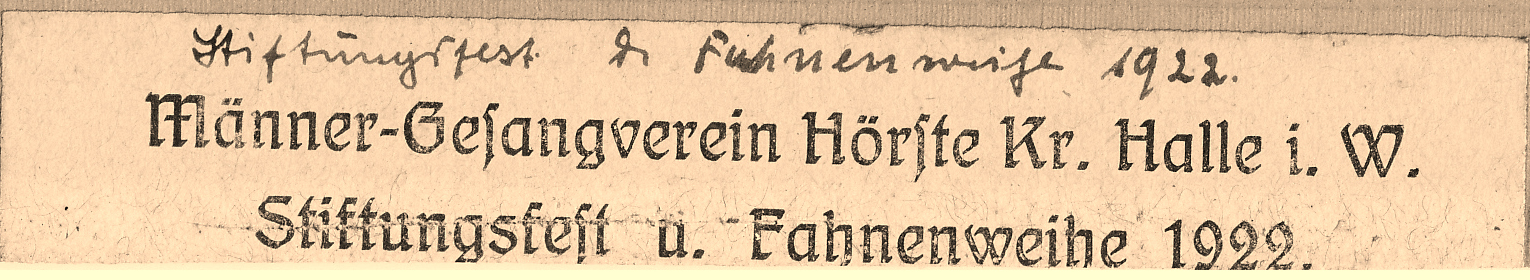 Stiftungsfest & Fahnenweihe 1922.
Männer-Geſangverein Hörſte Kr. Halle i. W.
Stiftungsfeſt u. Fahnenweihe 1922.